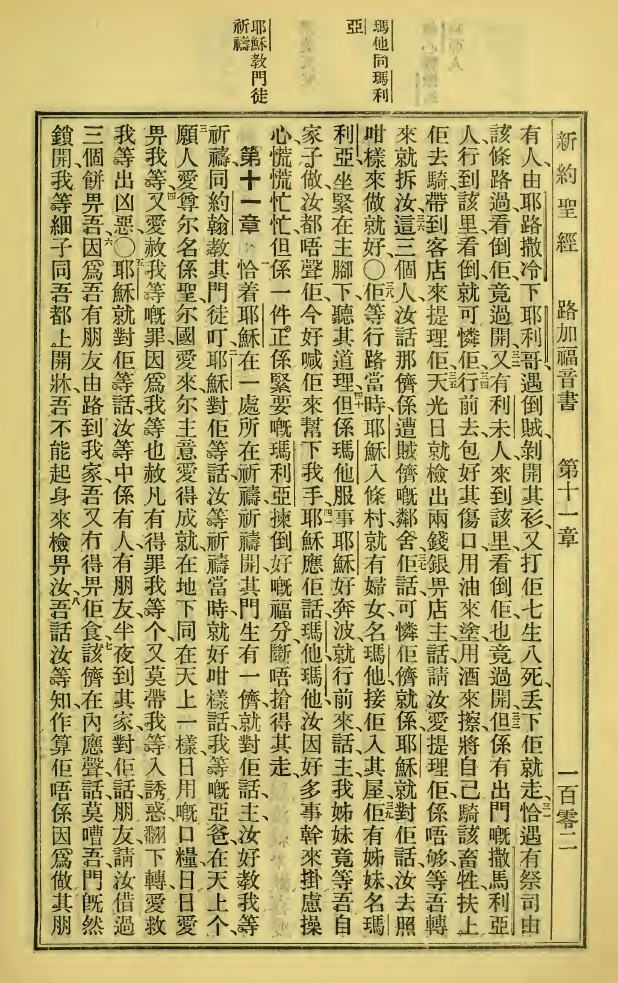 瑪他同瑪利亞
耶穌教門徒祈禱
新約聖經 路加福音書 第十一章 一百零二
有人由耶路撒冷下耶利哥、遇倒賊、剝開其衫、又打佢七生八死、丟下佢就走、三一恰遇有祭司由
該條路過、看倒佢、竟過開、三二又有利未人來到該里、看倒佢、也竟過開、三三但係有出門嘅撒馬利亞
人、行到該里、看倒就可憐佢、三四行前去、包好其傷口、用油來塗、用酒來擦、將自己騎該畜牲、扶上
佢去騎、帶到客店來提理佢、三五天光日就檢出兩錢銀、畀店主話、請汝愛提理佢、係唔够、等吾轉
來就拆汝、三六這三個人、汝話那儕係遭賊儕嘅鄰舍、三七佢話、可憐佢儕就係、耶穌就對佢話、汝去照
咁樣來做就好、〇三八佢等行路當時、耶穌入條村、就有婦女名瑪他、接佢入其屋、三九佢有姊妹名瑪
利亞、坐緊在主腳下、聽其道理、四十但係瑪他服事耶穌好奔波、就行前來話、主、我姊妹竟等吾自
家子做、汝都唔聲佢、今好喊佢來幫下我手、四一耶穌應佢話、瑪他瑪他、汝因好多事幹來掛慮操
心、慌慌忙忙、但係一件正係緊要嘅、瑪利亞揀倒好嘅福分、斷唔搶得其走、
第十一章 一恰着耶穌在一處所在祈禱、祈禱開、其門生有一儕就對佢話、主、汝好教我等
祈禱、同約翰教其門徒、二耶穌對佢等話、汝等祈禱當時、就好咁樣話、我等嘅亞爸在天上个、
願人愛尊尔名係聖、尔國愛來、尔主意愛得成就、在地下同在天上一樣、三日用嘅口糧、日日愛
畀我等、四又愛赦我等嘅罪、因爲我等也赦凡有得罪我等个、又莫帶我等入誘惑、翻下轉愛救
我等出凶惡、〇五耶穌就對佢等話、汝等中係有人有朋友、半夜到其家對佢話、朋友、請汝借過
三個餅畀吾、六因爲吾有朋友由路到我家、吾又冇得畀佢食、七該儕在內應聲話、莫嘈吾、門旣然
鎖開、我等細子同吾都上開牀、吾不能起身來檢畀汝、八吾話汝等知、作算佢唔係因爲做其朋